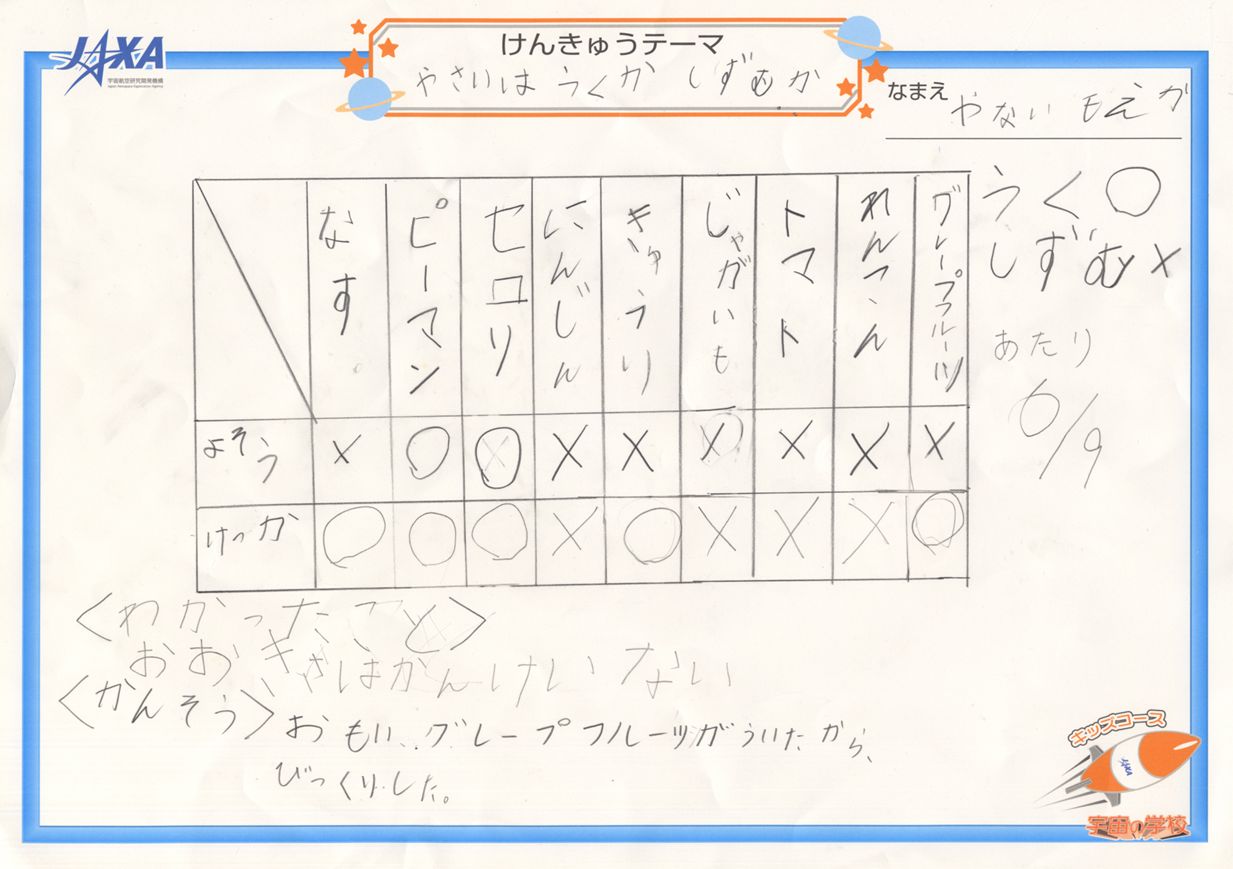 JAXA
宇宙航空研究開発機構
Japan Aerospace Exploration Agency
けんきゅうテーマ
やさいは うくか しずむか
なまえ
やない もえか
なす ピーマン セロリ にんじん きゅうり じゃがいも トマト れんこん グレープフルーツ
よそう × ○ ○ × × × × × ×
けっか ○ ○ ○ × ○ × × × ○
うく ○
しずむ ×
あたり
6/9
<わかったこと>
おおきさはかんけいない
<かんそう>
おもい、グレープフルーツがういたから、
びっくりした。
キッズコース
JAXA
宇宙の学校